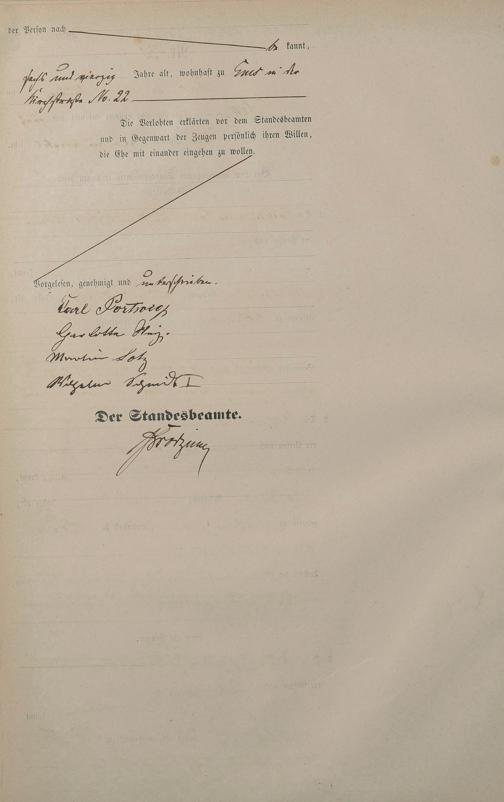 der Person nach be kannt,
sechs und vierzig Jahre alt, wohnhaft zu Ems in der
Kirchstraße No. 22
Die Verlobten erklärten vor dem Standesbeamten
und in Gegenwart der Zeugen persönlich ihren Willen,
die Ehe mit einander eingehen zu wollen.
Vorgelesen, genehmigt und unterschrieben.
Karl
Martin Lotz
Wilhelm Schmidt I
Der Standesbeamte.